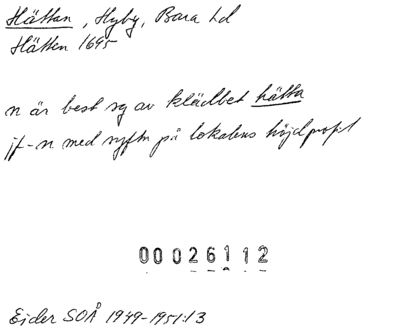 Hättan, Hyby, Bara hd
Hätten 1695
n är best sg av klädbet hätta
jf-n med syftn på lokalens höjdprofil
00026112
Ejder SOÅ 1949-1951:13